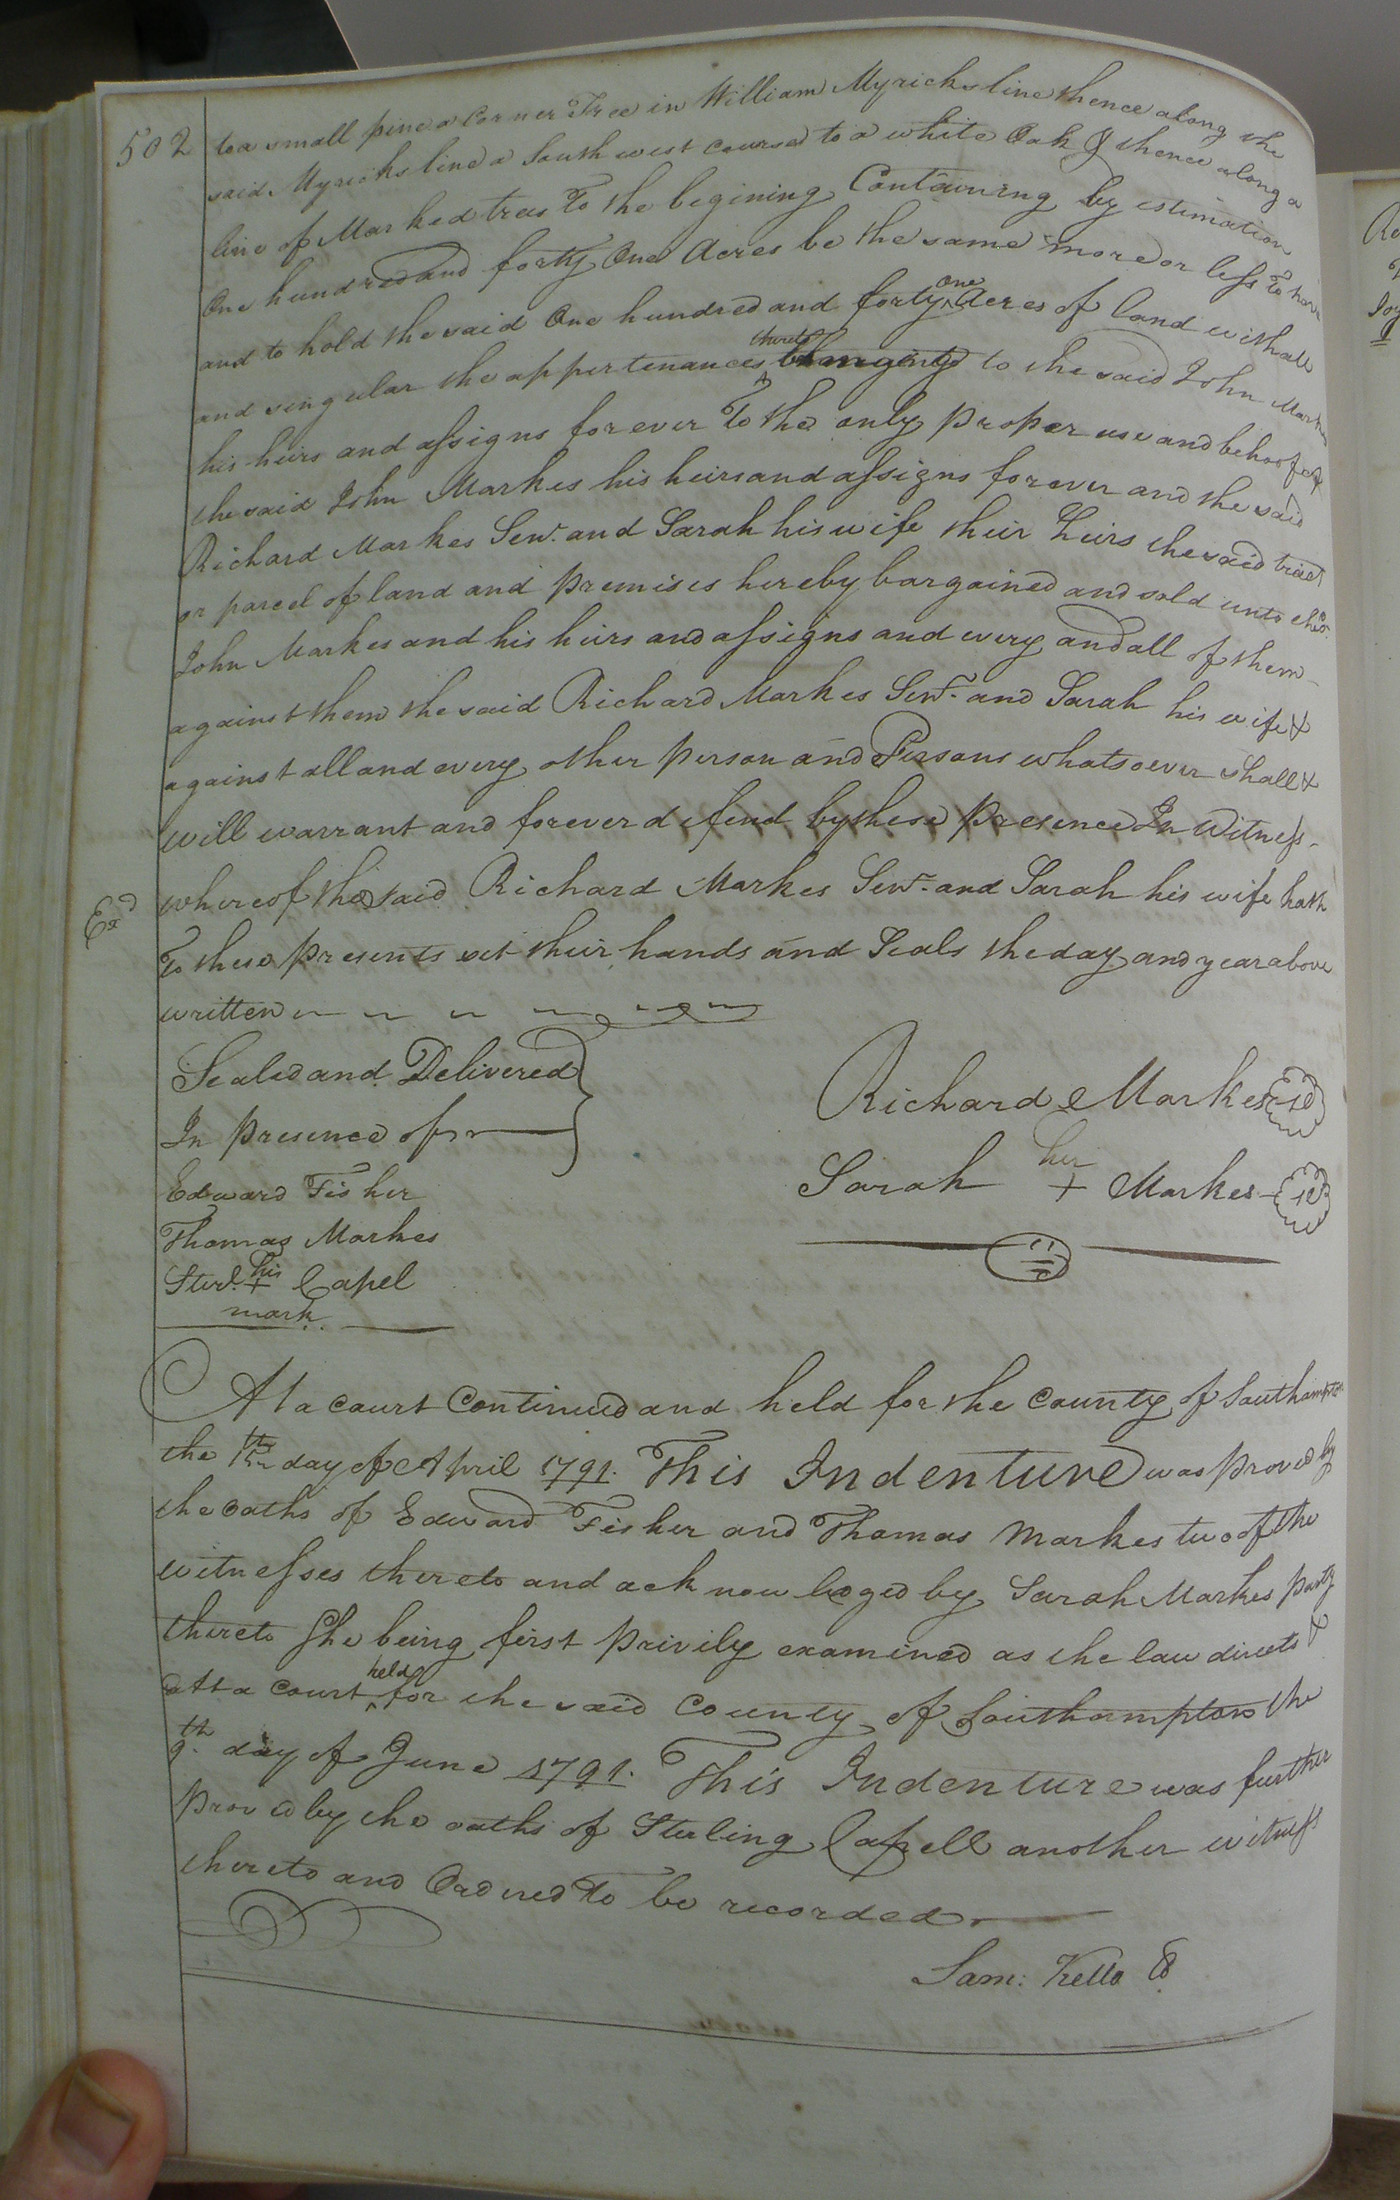 502
to a small pine a Corner Tree in William Myricks line thence along the
said Myricks line a South west course to a white Oak & thence along a
line of Marked trees To the begining Containing by estimation
One hundred and forty One Acres be the same more or less To have
and to hold the said One hundred and forty one Acres of Land with all
and singular the appertenances thereto belonging to the said John Markes
his heirs and assigns forever To the only proper use and behoof of
the said John Markes his heirs and assigns forever and the said
Richard Markes Senr. and Sarah his wife their heirs the said tract
or parcel of land and premises hereby bargained and sold unto the sd.
John Markes and his heirs and assigns and every and all of them
against them the said Richard Markes Senr. and Sarah his wife &
against all and every other person and Persons whatsoever shall &
will warrant and forever defend by these presence In Witness
Exd
whereof the said Richard Markes Senr. and Sarah his wife hath
To these presents set their hands and Seals the day and year above
written
Sealed and Delivered
In presence of
Richard Markes
Edward Fisher
Sarah her + Markes
Thomas Markes
Sterl. his + Capel
mark
At a court Continued and held for the County of Southampton
the day of April 1791. This Indenture was proved by
the oaths of Edward Fisher and Thomas Markes two of the
witnesses thereto and acknowledged by Sarah Markes party
thereto She being first privily examined as the law directs &
att a Court held for the said County of Southampton the
9th. day of June 1791. This Indenture was further
proved by the oaths of Sterling Capell another witness
thereto and Ordered To be recorded
Sam: Kello